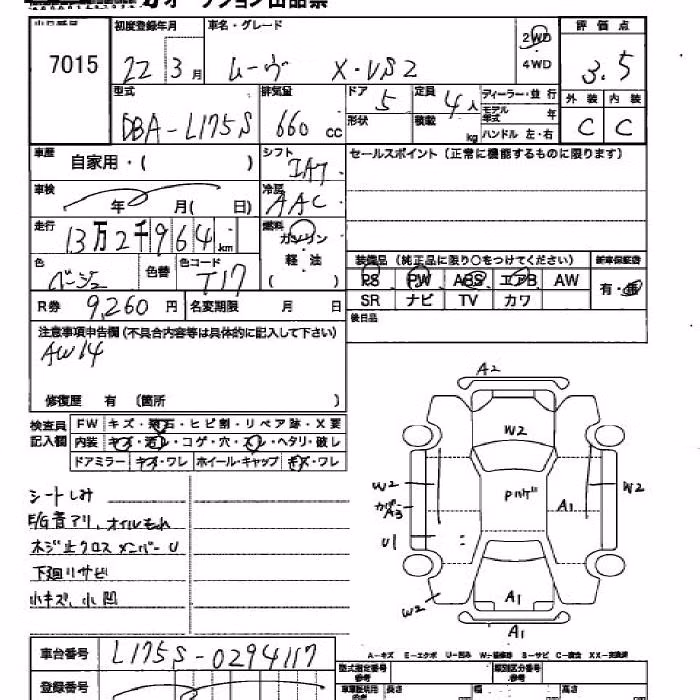 オークション出品票
7015
初度登録年月
22 3月
車名・グレード
ムーヴ X・VS2
2WD
4WD
評価点
3.5
型式
DBA-L175S
排気量
660 cc
ドア
5
形状
定員
4人
積載
kg
ディーラー・並行
モデル年式 年
ハンドル 左・右
外装 内装
C C
車歴
自家用・( )
シフト
IAT
セールスポイント (正常に機能するものに限ります)
車検
年 月( 日)
冷房
AAC
走行
13万2千964km
燃料
ガソリン
軽油
( )
色
ベージュ
色替
色コード
T17
装備品 (純正品に限り○をつけてください)
新車保証書
PS PW ABS エアB AW
有・無
SR ナビ TV カワ
R券 9,260円
名変期限 月 日
後日品
注意事項申告欄 (不具合内容等は具体的に記入して下さい)
AW14
修復歴 有 (箇所 )
検査員記入欄
FW キズ・飛石・ヒビ割・リペア跡・X要
内装 キズ・汚レ・コゲ・穴・スレ・ヘタリ・破レ
ドアミラー キズ・ワレ ホイール・キャップ キズ・ワレ
シートしみ
E/G音アリ、オイルもれ
ネジ止クロスメンバーU
下廻りサビ
小キズ、小凹
A2
W2
W2
カバーA3
U1
W2
A1
W2
A1
A1
A-キズ E-エクボ U-凹み W-補修跡 S-サビ C-腐食 XX-交換済
車台番号
L175S-0294117
登録番号
型式指定番号
参考
類別区分番号
参考
長さ
幅
高さ